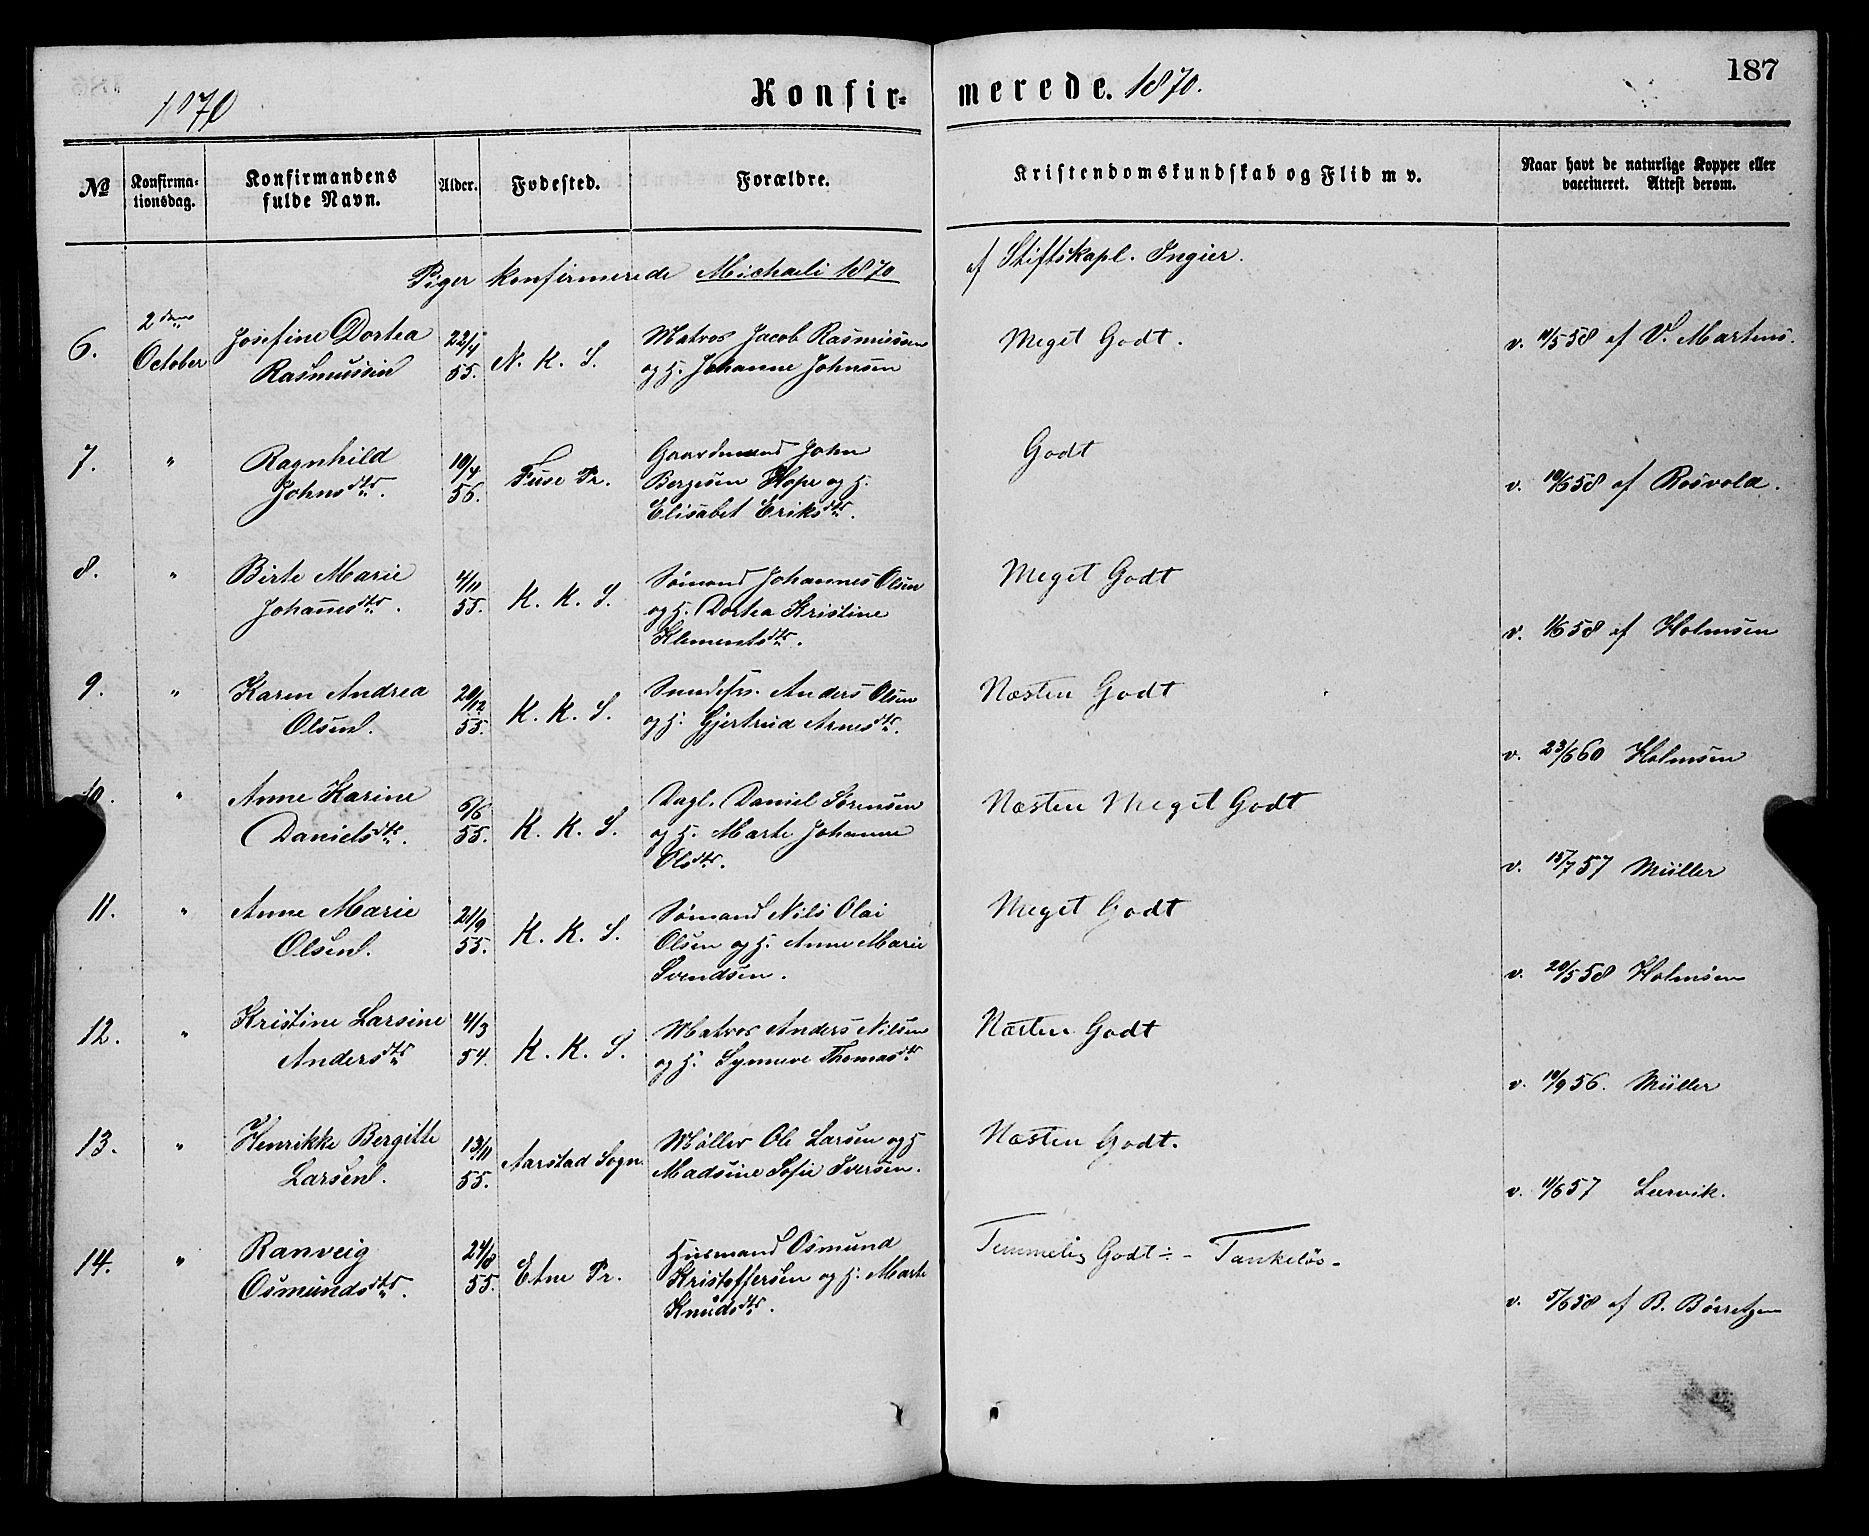 187
1870
Konfir-merede. 1870.
№
Konfirma-tionsdag.
Konfirmandens fulde Navn.
Alder.
Fødested.
Forældre.
Kristendomskundskab og Flid m v.
Naar havt de naturlige Kopper eller vaccineret. Attest derom.
Piger konfirmerede Michaeli 1870 af Stiftskapl. Ingier.
6. 2den October Josefine Dortea Rasmussen 22/4 55. N. K. S. Matros Jacob Rasmussen og H. Johanne Johnsen Meget Godt. v. 11/5 58 af V. Martens.
7. " Ragnhild Johnsdtr. 10/4 56. Fuse Pr. Gaardmand John Bergesen Hope og H. Elisabet Eriksdtr. Godt v. 10/6 58 af Rosvold.
8. " Birte Marie Johannesdtr. 4/11 55. K. K. S. Sømand Johannes Olsen og H. Dortea Kristine Klementsdtr. Meget Godt v. 1/6 58 af Holmsen
9. " Karen Andrea Olsen. 20/12 55. K. K. S. Anders Olsen og H. Gjertrud Arnesdtr. Næsten Godt v. 23/6 60 Holmsen
10. " Anne Karine Danielsdtr. 6/6 55. K. K. S. Dagl. Daniel Sørensen og H. Marte Johanne Olsdtr. Næsten Meget Godt v. 15/7 57 Müller
11. " Anne Marie Olsen. 21/9 55. K. K. S. Sømand Nils Olai Olsen og H. Anne Marie Svendsen. Meget Godt v. 20/5 58 Holmsen
12. " Kristine Larsine Andersdtr 4/3 54. K. K. S. Matros Anders Nilsen og H. Synneve Thomasdtr Næsten Godt v. 18/9 56. Müller
13. " Henrikke Bergitte Larsen. 13/11 55. Aarstad Sogn Møller Ole Larsen og H Madsine Sofie Iversen. Næsten Godt. v. 11/6 57 Leervik.
14. " Ranveig Osmundsdtr. 24/8 55. Etne Pr. Husmand Osmund Kristoffersen og H. Marte Knudsdtr. Temmelig Godt ÷ - Tankeløs - v. 5/6 58 af B. Børretzen